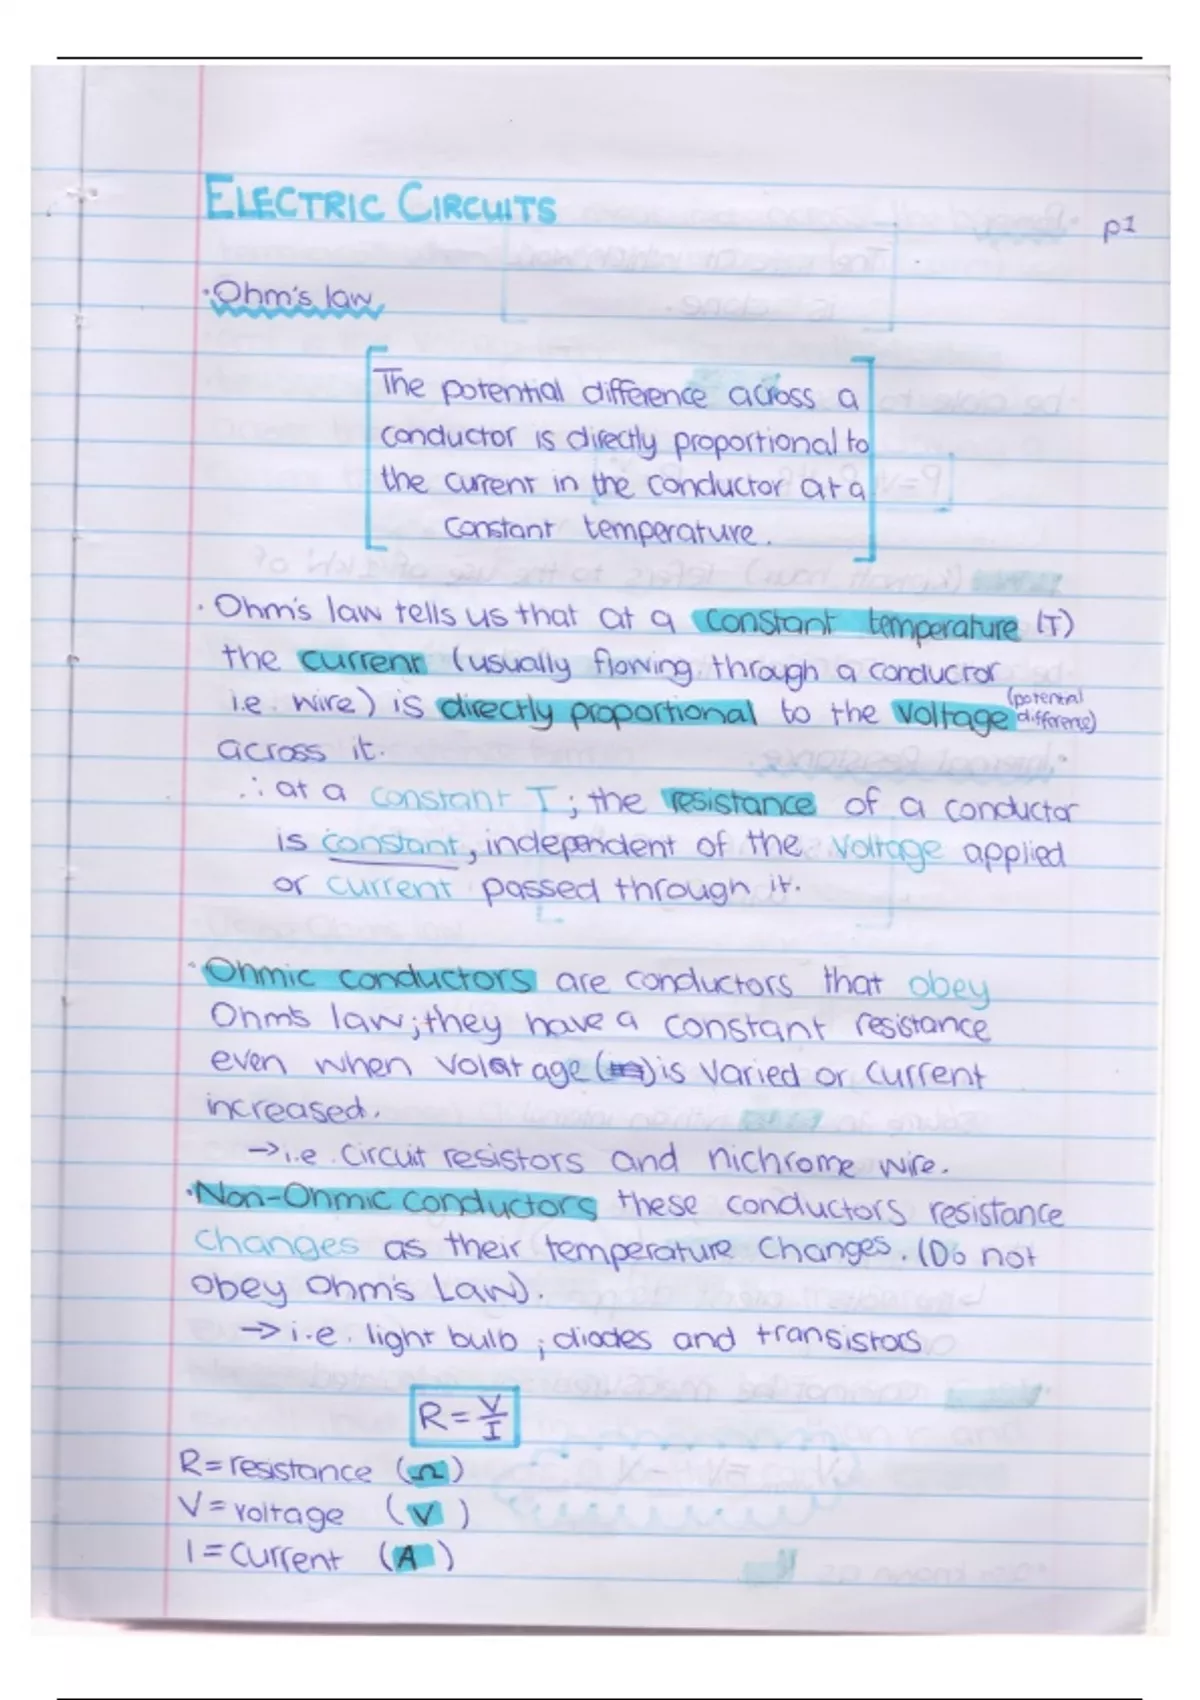 ELECTRIC CIRCUITS
p1
·Ohm's law
The potential difference across a
conductor is directly proportional to
the current in the conductor at a
constant temperature.
· Ohm's law tells us that at a constant temperature (T)
the current (usually flowing through a conductor
i.e. wire) is directly proportional to the voltage (potential difference)
across it.
∴ at a constant T; the resistance of a conductor
is constant, independent of the voltage applied
or current passed through it.
· Ohmic conductors are conductors that obey
Ohm's law; they have a constant resistance
even when volatage () is varied or current
increased.
→i.e. Circuit resistors and nichrome wire.
·Non-Ohmic conductors these conductors resistance
changes as their temperature changes. (Do not
obey Ohm's Law).
→i.e. light bulb ; diodes and transistors
R=V/I
R=resistance (Ω)
V=voltage (V)
I=current (A)